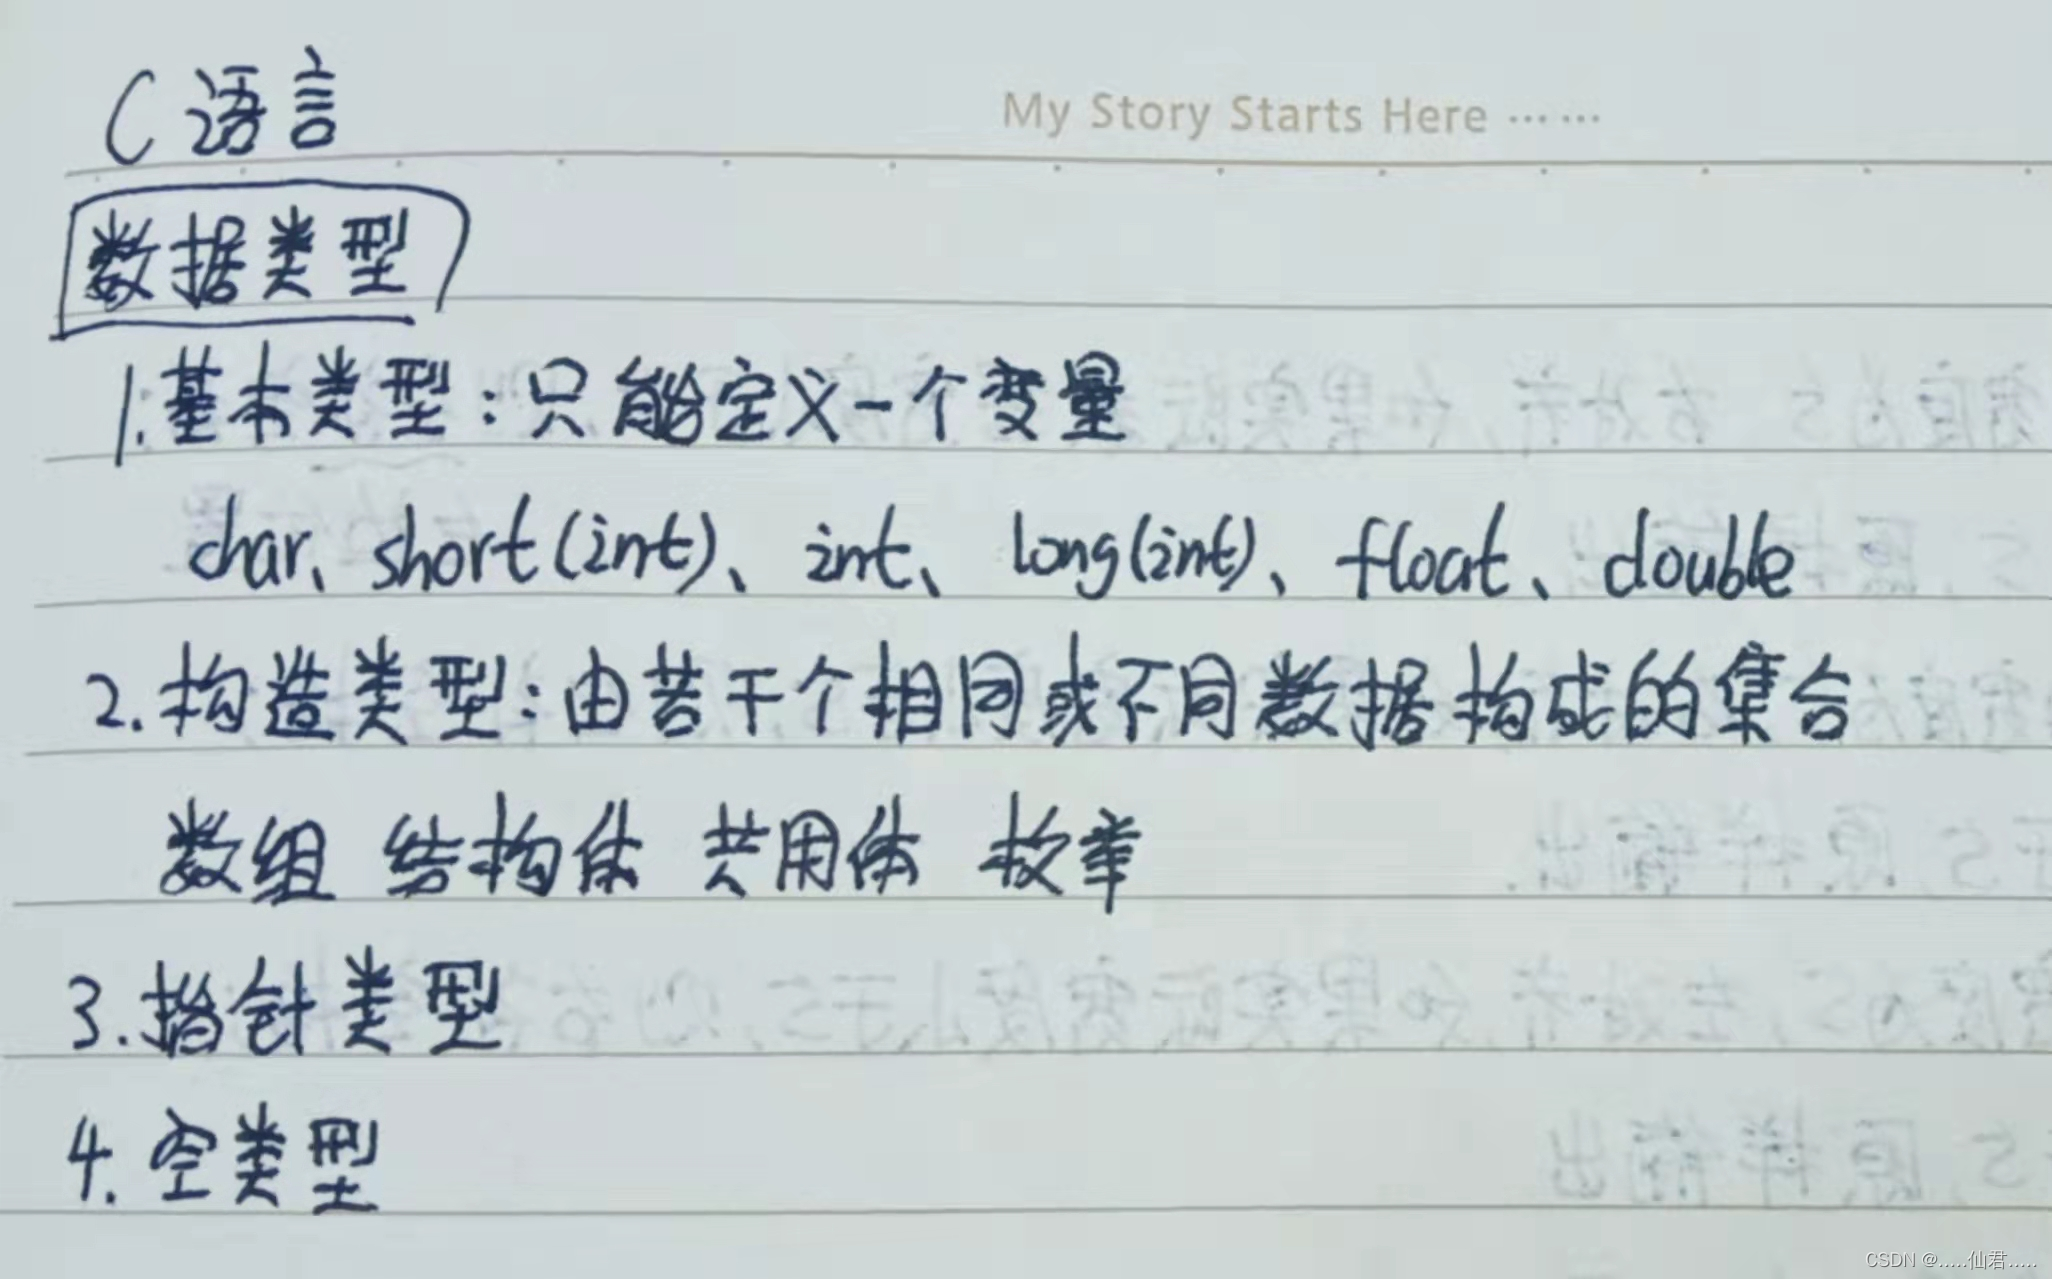 C语言
My Story Starts Here ……
数据类型
1.基本类型：只能定义一个变量
char、short(int)、int、long(int)、float、double
2.构造类型：由若干个相同或不同数据构成的集合
数组 结构体 共用体 枚举
3.指针类型
4.空类型
CSDN @.....仙君.....